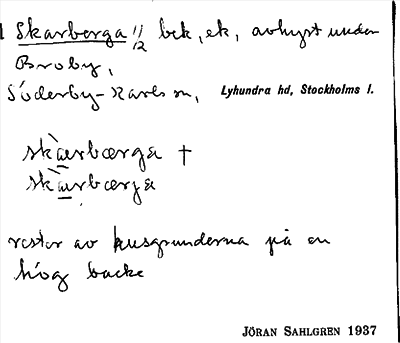 1 Skarberga 1/2 bek, ek, avhyst under
Broby,
Söderby-Karls sn, Lyhundra hd, Stockholms l.
skàrbærga †
skàrbærja
rester av husgrunderna på en
hög backe
JÖRAN SAHLGREN 1937